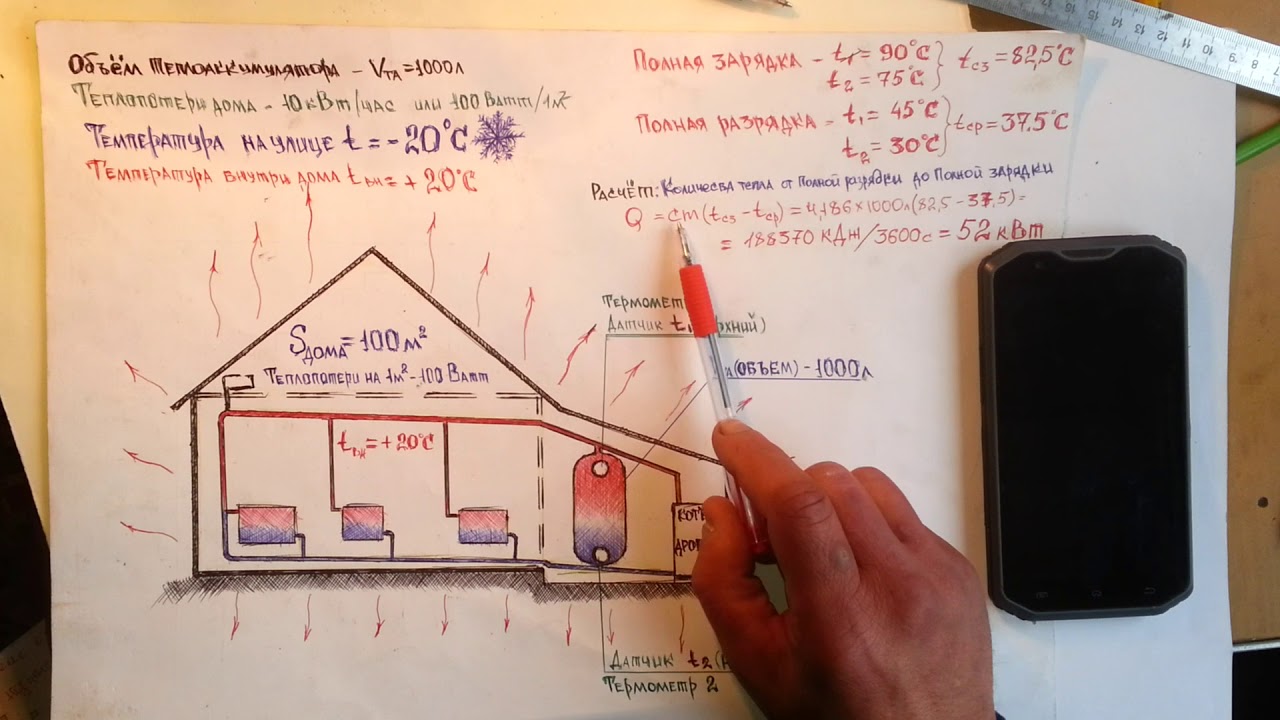 Объём теплоаккумулятора - VТА = 1000л
Теплопотери дома - 10 кВт/час или 100 Ватт/1м²
Температура на улице t = - 20°С
Температура внутри дома tвн = + 20°С
Полная зарядка - t1 = 90°С
t2 = 75°С
tсз = 82,5°С
Полная разрядка - t1 = 45°С
t2 = 30°С
tср = 37,5°С
Расчёт: Количесва тепла от полной разрядки до полной зарядки
Q = cm(tсз - tср) = 4,186 × 1000л(82,5 - 37,5) =
= 188370 кДж/3600с = 52 кВт
Sдома = 100 м²
Теплопотери на 1м² - 100 Ватт
tвн = + 20°С
Датчик
(объём) - 1000л
Датчик t2
Термометр 2